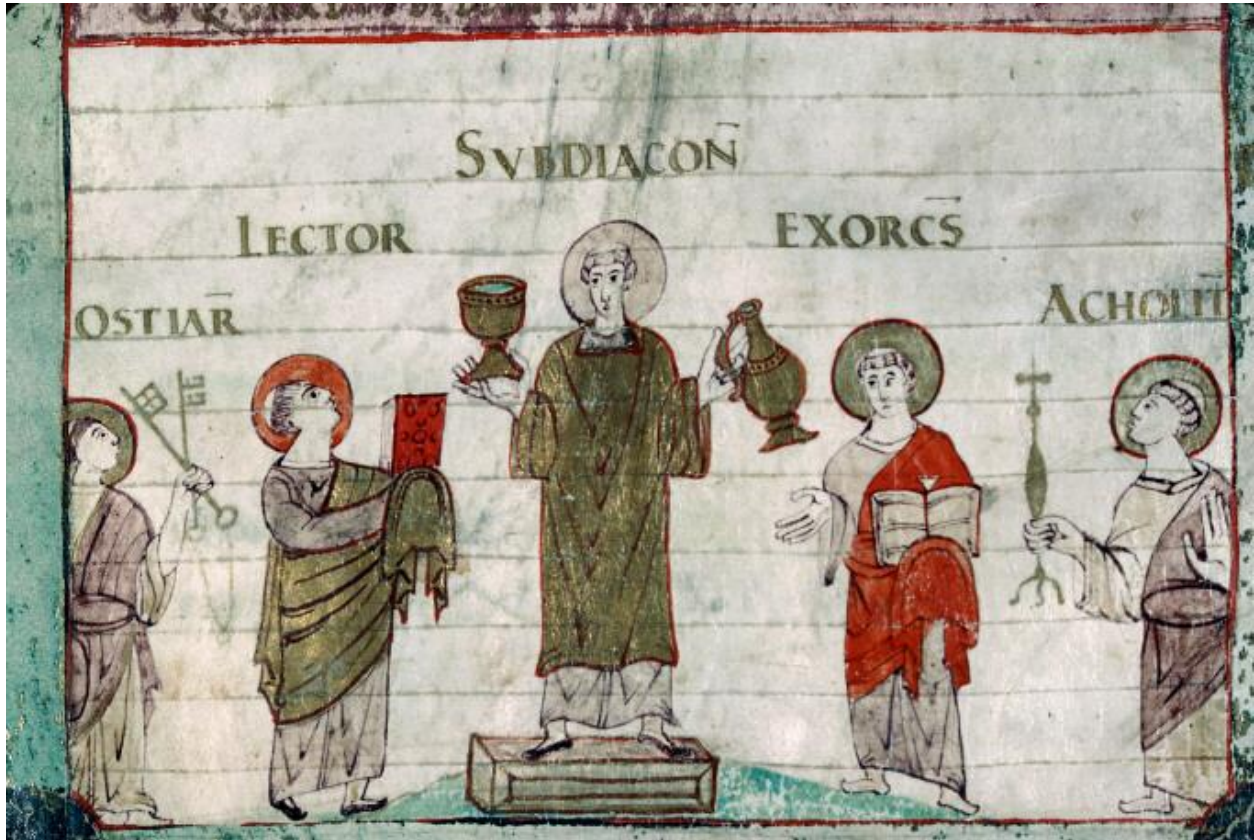 SVBDIACON̄
LECTOR
EXORC̄S
OSTIAR̄
ACHOLIT̄